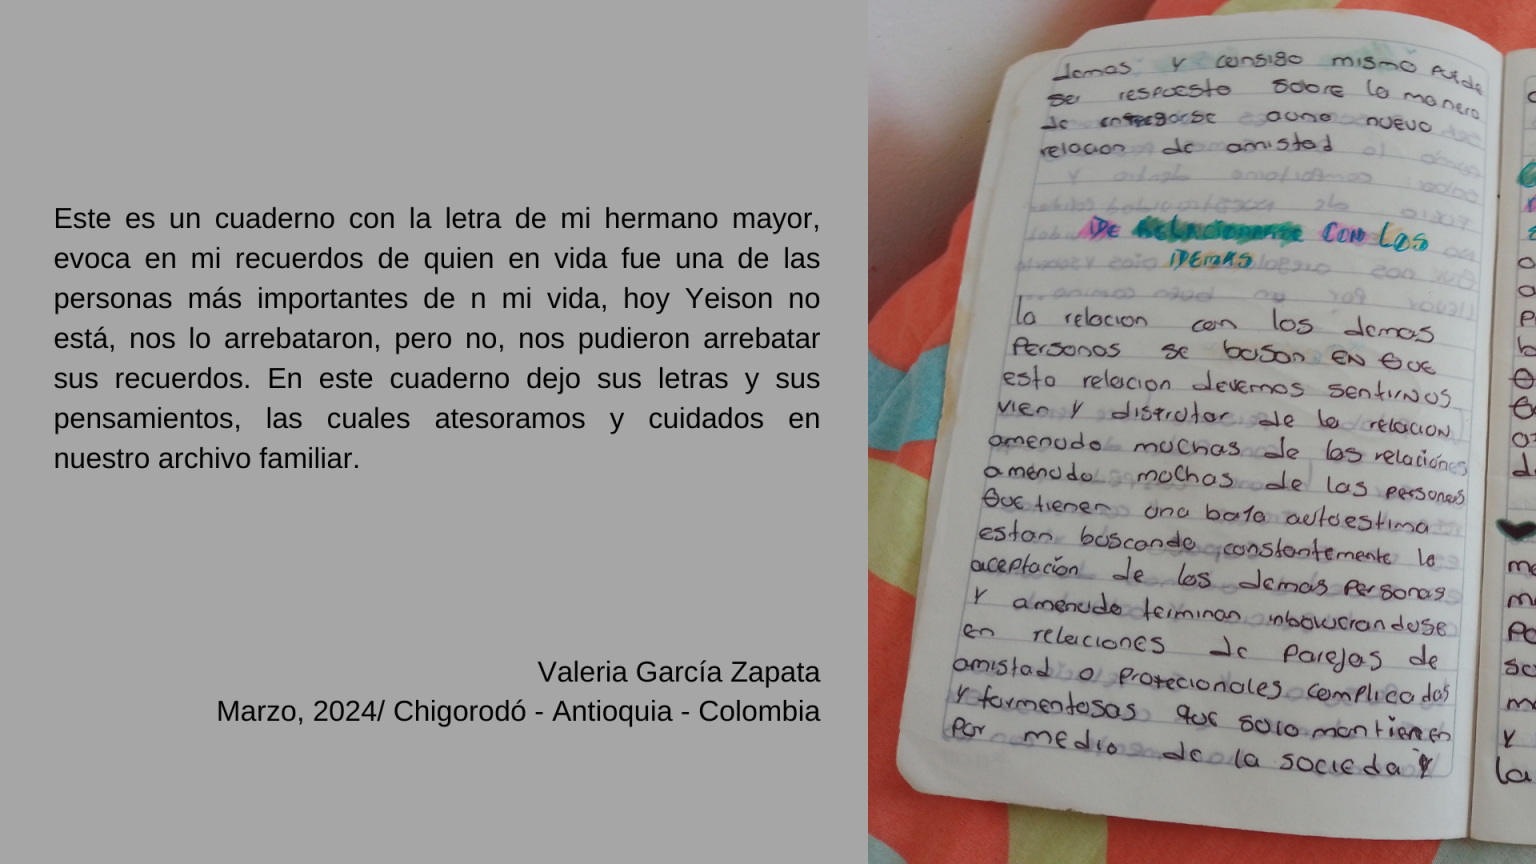 Este es un cuaderno con la letra de mi hermano mayor,
evoca en mi recuerdos de quien en vida fue una de las
personas más importantes de n mi vida, hoy Yeison no
está, nos lo arrebataron, pero no, nos pudieron arrebatar
sus recuerdos. En este cuaderno dejo sus letras y sus
pensamientos, las cuales atesoramos y cuidados en
nuestro archivo familiar.
Valeria García Zapata
Marzo, 2024/ Chigorodó - Antioquia - Colombia
demas y consigo mismo puede
ser respuesta sobre la manera
de entregarse auna nueva
relacion de amistad
DE RELACIONARSE CON LOS
DEMAS
la relacion con los demas
Personas se basan EN QUE
esta relacion devemos sentirnos
vien y disfrutar de la relacion
amenudo muchas de las relaciónes
amenudo muchas de las personas
Que tienen una baja autoestima
estan buscando constantemente la
aceptación de los demas personas
Y amenudo terminan inbolucrandose
en relaciones de parejas de
amistad o profecionales complicadas
y tormentosas que solo mantienen
por medio de la socieda y